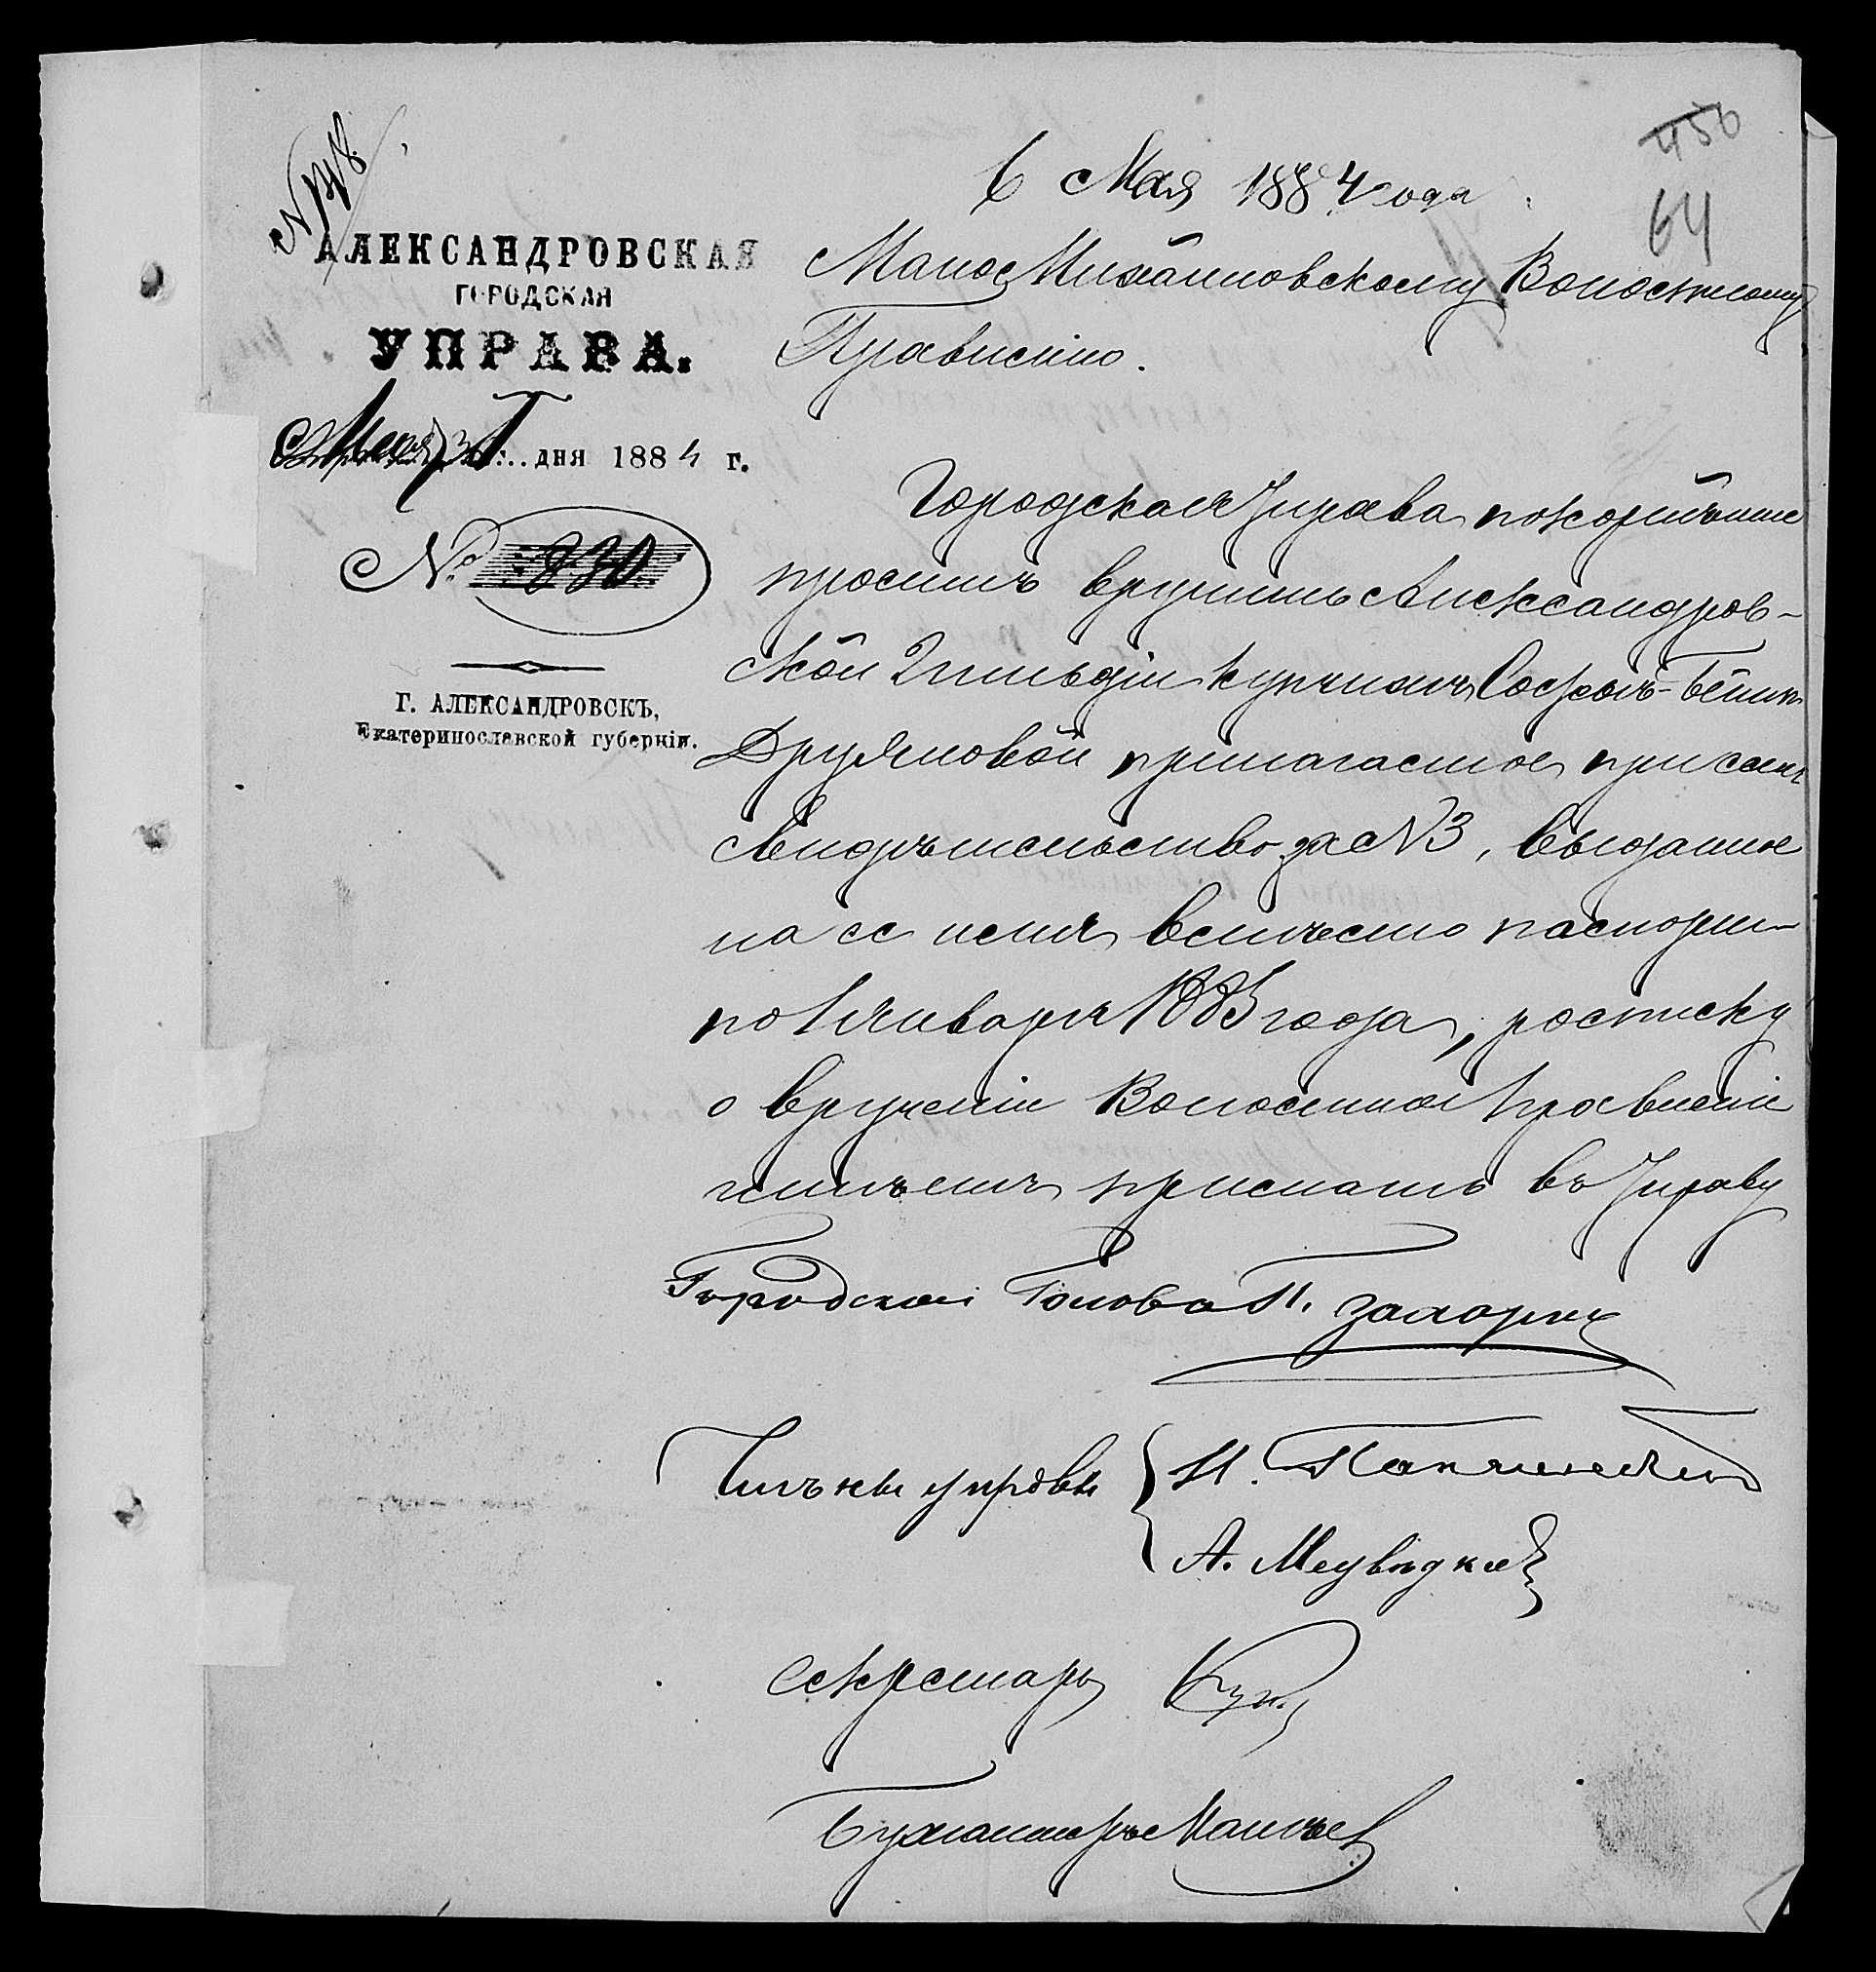 450
64
6 Мая 1884 года
АЛЕКСАНДРОВСКАЯ
ГОРОДСКАЯ
УПРАВА.
дня 1884 г.
№ 830
Г. АЛЕКСАНДРОВСКЪ,
Екатеринославской губерніи.
Мало Михайловскому Волостному
Правленію.
Городская Управа покорнѣйше
проситъ вручить Александров-
ской 2 гильдіи купчихѣ
Друяновой прилагаемое при семъ
свидѣтельство за № 3, выданное
на ее имя вместо паспорта
по 1 Января 1885 года, росписку
о врученіи Волостное Правленіе
имѣетъ прислать въ Управу
Городской Голова П. Захарин
Члѣны управы
А. Медвѣдков
Секретарь
Бухгалтеръ